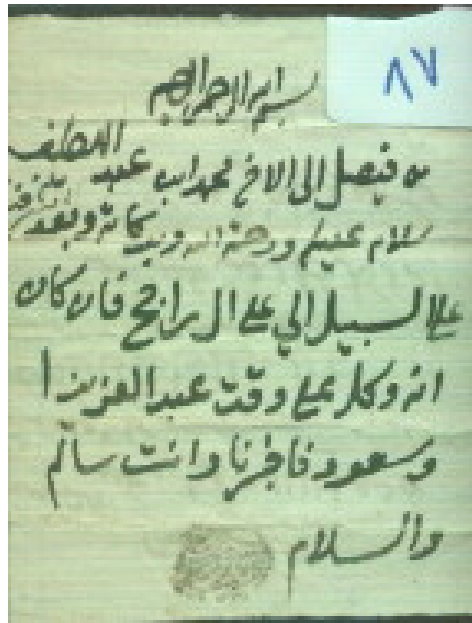 ٨٧
بسم الله الرحمن الرحيم
من فيصل الى الاخ محمد ابن عبد اللطيف
سلام عليكم ورحمة الله وبركاته وبعد
على السبيل الي على ال راجح فان كان
انه وكل على وقت عبد العزيز
وسعود فاخرنا وانت سالم
والسلام